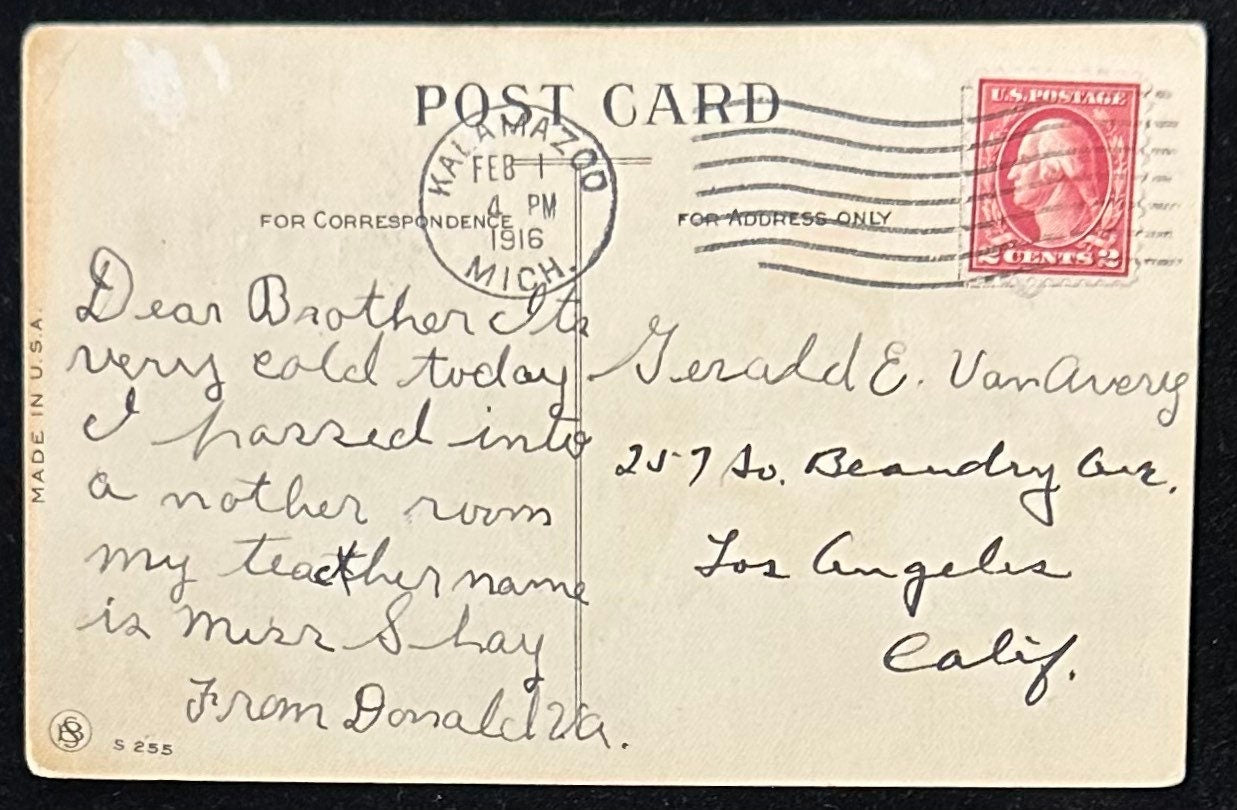 POST CARD
U.S. POSTAGE
2 CENTS 2
KALAMAZOO
FEB 1
4 PM
1916
MICH.
FOR CORRESPONDENCE
FOR ADDRESS ONLY
MADE IN U.S.A.
Dear Brother Its
very cold today
I passed into
a nother room
my teacther name
is Miss Shay
From Donald Va.
Gerald E. VanAvery
257 So. Beaudry Ave.
Los Angeles
Calif.
S 255